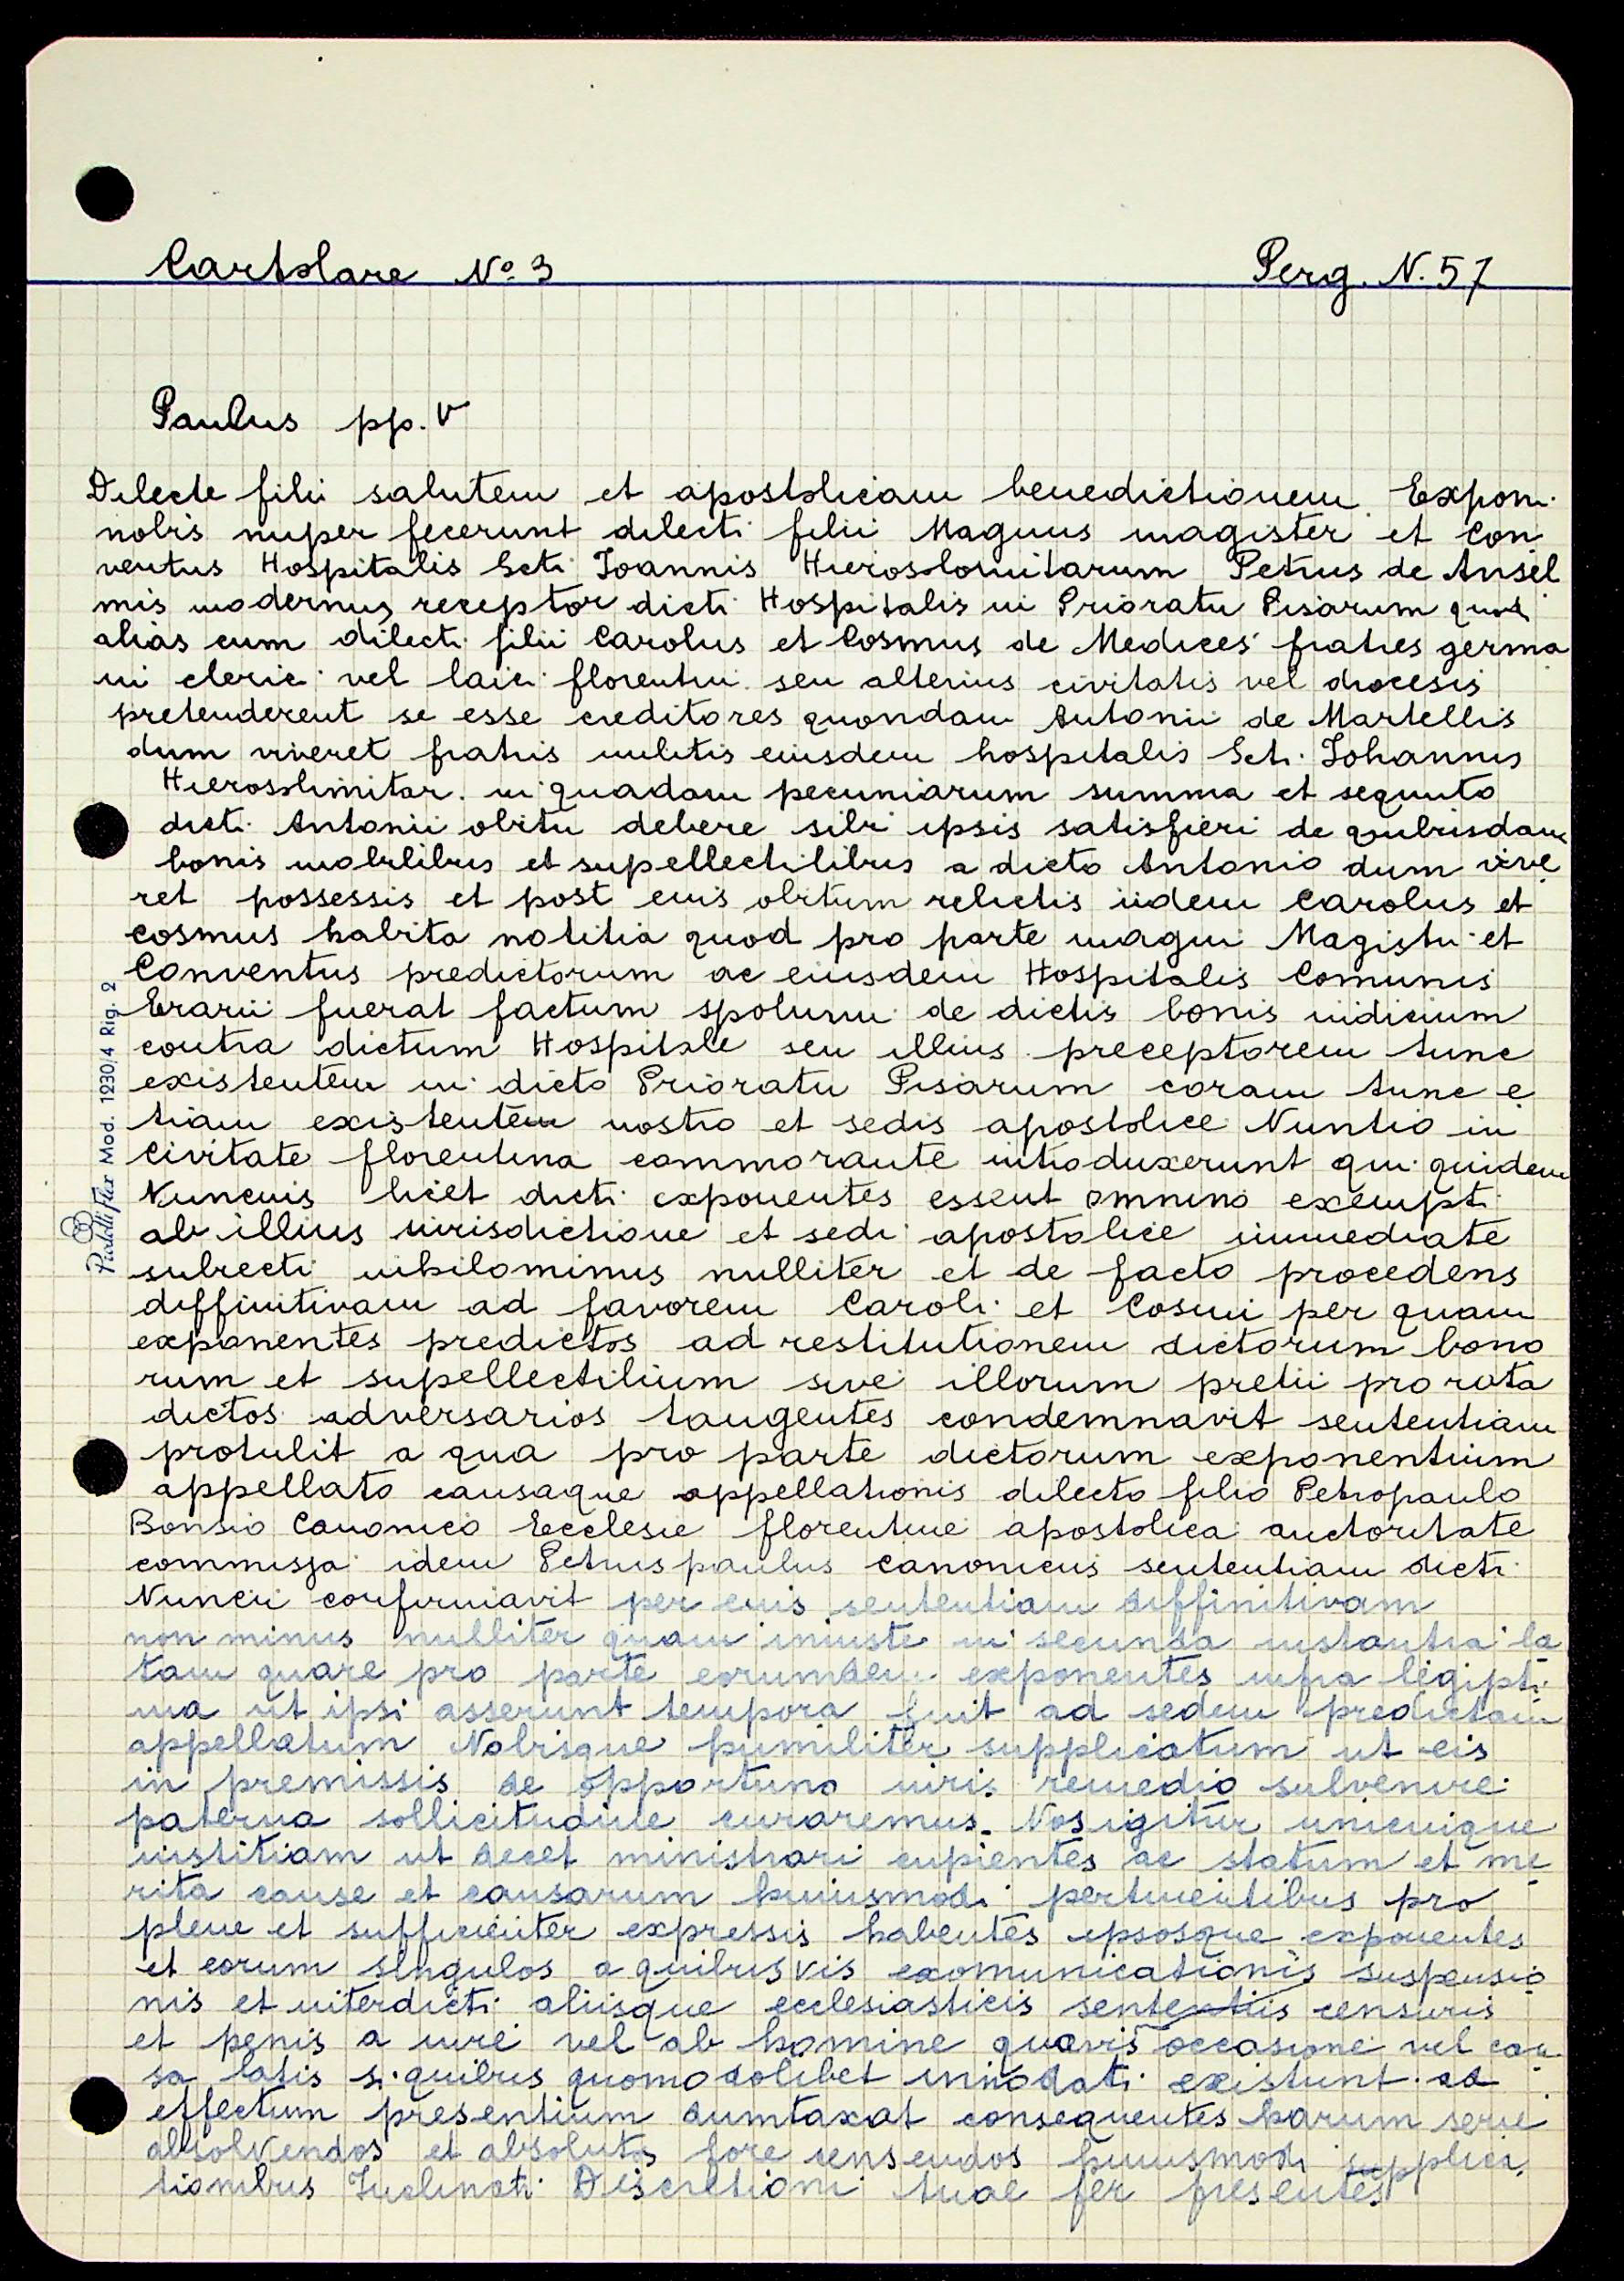 Cartolare Nº 3
Perg. N. 57
Paulus pp. V
Dilecte fili salutem et apostolicam benedictionem. Exponi
nobis nuper fecerunt dilecti filii Magnus magister et Con
ventus Hospitalis Scti Joannis Hierosolomitarum Petrus de Ansel
mis modernus receptor dicti Hospitalis in Prioratu Pisarum quod
alias cum dilecti filii Carolus et Cosmus de Medices fratres germa
ni clerici vel laici florentini seu alterius civitatis vel diocesis
pretenderent se esse creditores quondam Antonii de Martellis
dum viveret fratris militis eiusdem hospitalis Scti Johannis
Hierosolimitar. in quadam pecuniarum summa et sequuto
dicti Antonii obitu debere sibi ipsis satisfieri de quibusdam
bonis mobilibus et supellectilibus a dicto Antonio dum vive
ret possessis et post eius obitum relictis iidem Carolus et
Cosmus habita notitia quod pro parte magni Magistri et
Conventus predictorum ac eiusdem Hospitalis Comunis
Erarii fuerat factum spolium de dictis bonis iudicium
contra dictum Hospitale seu illius preceptorem tunc
existentem in dicto Prioratu Pisarum coram tunc e
tiam existentem nostro et sedis apostolice Nuntio in
Civitate florentina commorante introduxerunt qui quidem
Nuncius licet dicti exponentes essent omnino exempti
ab illius iurisdictione et sedi apostolice immediate
subiecti nihilominus nulliter et de facto procedens
diffinitivam ad favorem Caroli et Cosmi per quam
exponentes predictos ad restitutionem dictorum bono
rum et supellectilium sive illorum pretii pro rata
dictos adversarios tangentes condemnavit sententiam
protulit a qua pro parte dictorum exponentium
appellato causaque appellationis dilecto filio Petropaulo
Bonsio Canonico Ecclesie florentine apostolica auctoritate
commissa idem Petruspaulus canonicus sententiam dicti
Nuncii confirmavit per eius sententiam diffinitivam
non minus nulliter quam iniuste in secunda instantia la
tam quare pro parte eorumdem exponentes infra legipti
ma ut ipsi asserunt tempora fuit ad sedem predictam
appellatum Nobisque humiliter supplicatum ut eis
in premissis de opportuno iuris remedio subvenire
paterna sollicitudine curaremus. Nos igitur unicuique
iustitiam ut decet ministrari cupientes ac statum et me
rita cause et causarum huiusmodi pertinentibus pro
plene et sufficienter expressis habentes ipsosque exponentes
et eorum singulos a quibusvis exomunicationis suspensio
nis et interdicti aliisque ecclesiasticis sententiis censuris
et penis a iure vel ab homine quavis occasione vel cau
sa latis si quibus quomodolibet innodati existunt ad
effectum presentium dumtaxat consequentes harum serie
absolvendos et absolutos fore censendos huiusmodi supplica
tionibus Inclinati Discretioni tuae per presentes
PadelliFlex Mod. 1230/4 Rig. 2